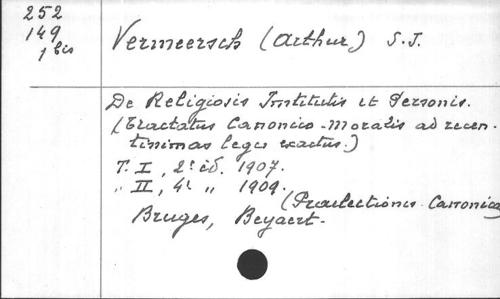 252
149
1 bis
Vermeersch (Arthur) S.J.
De Religiosis Institutis et Personis.
(Tractatus Canonico-Moralis ad recen-
tissimas leges exactus.)
T. I, 2e éd. 1907.
" II, 4e " 1909.
(Praelectiones Canonicae)
Bruges, Beyaert.